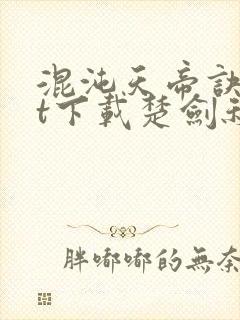 混沌天帝訣
t下載楚劍
胖嘟嘟的無奈